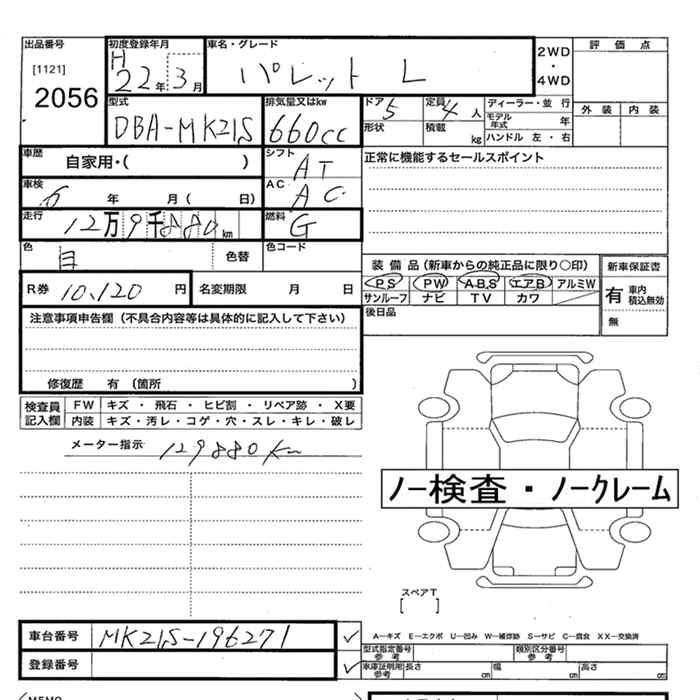 出品番号 初度登録年月 車名・グレード 2WD・4WD 評価点
[1121] H 22年 3月 パレット L
2056
型式 排気量又はkw ドア 定員 ディーラー・並行 外装 内装
DBA-MK21S 660cc 5 4人 モデル年式 年
形状 積載 kg ハンドル 左・右
車歴 自家用・( ) シフト AT 正常に機能するセールスポイント
車検 年 月( 日) AC AC
走行 12万9千880km 燃料 G
色 色替 色コード
装備品(新車からの純正品に限り○印) 新車保証書
PS PW ABS エアB アルミW 有 車内積込無効
R券 10,120円 名変期限 月 日 サンルーフ ナビ TV カワ
後日品 無
注意事項申告欄(不具合内容等は具体的に記入して下さい)
修復歴 有(箇所 )
検査員記入欄 FW キズ・飛石・ヒビ割・リペア跡・X要
内装 キズ・汚レ・コゲ・穴・スレ・キレ・破レ
メーター指示 129880Km
ノー検査・ノークレーム
スペアT
[ ]
車台番号 MK21S-196271 ✓
A―キズ E―エクボ U―凹み W―補修跡 S―サビ C―腐食 XX―交換済
型式指定番号 参考 類別区分番号 参考
登録番号 ✓ 車庫証明用 参考 長さ cm 幅 cm 高さ cm
MEMO